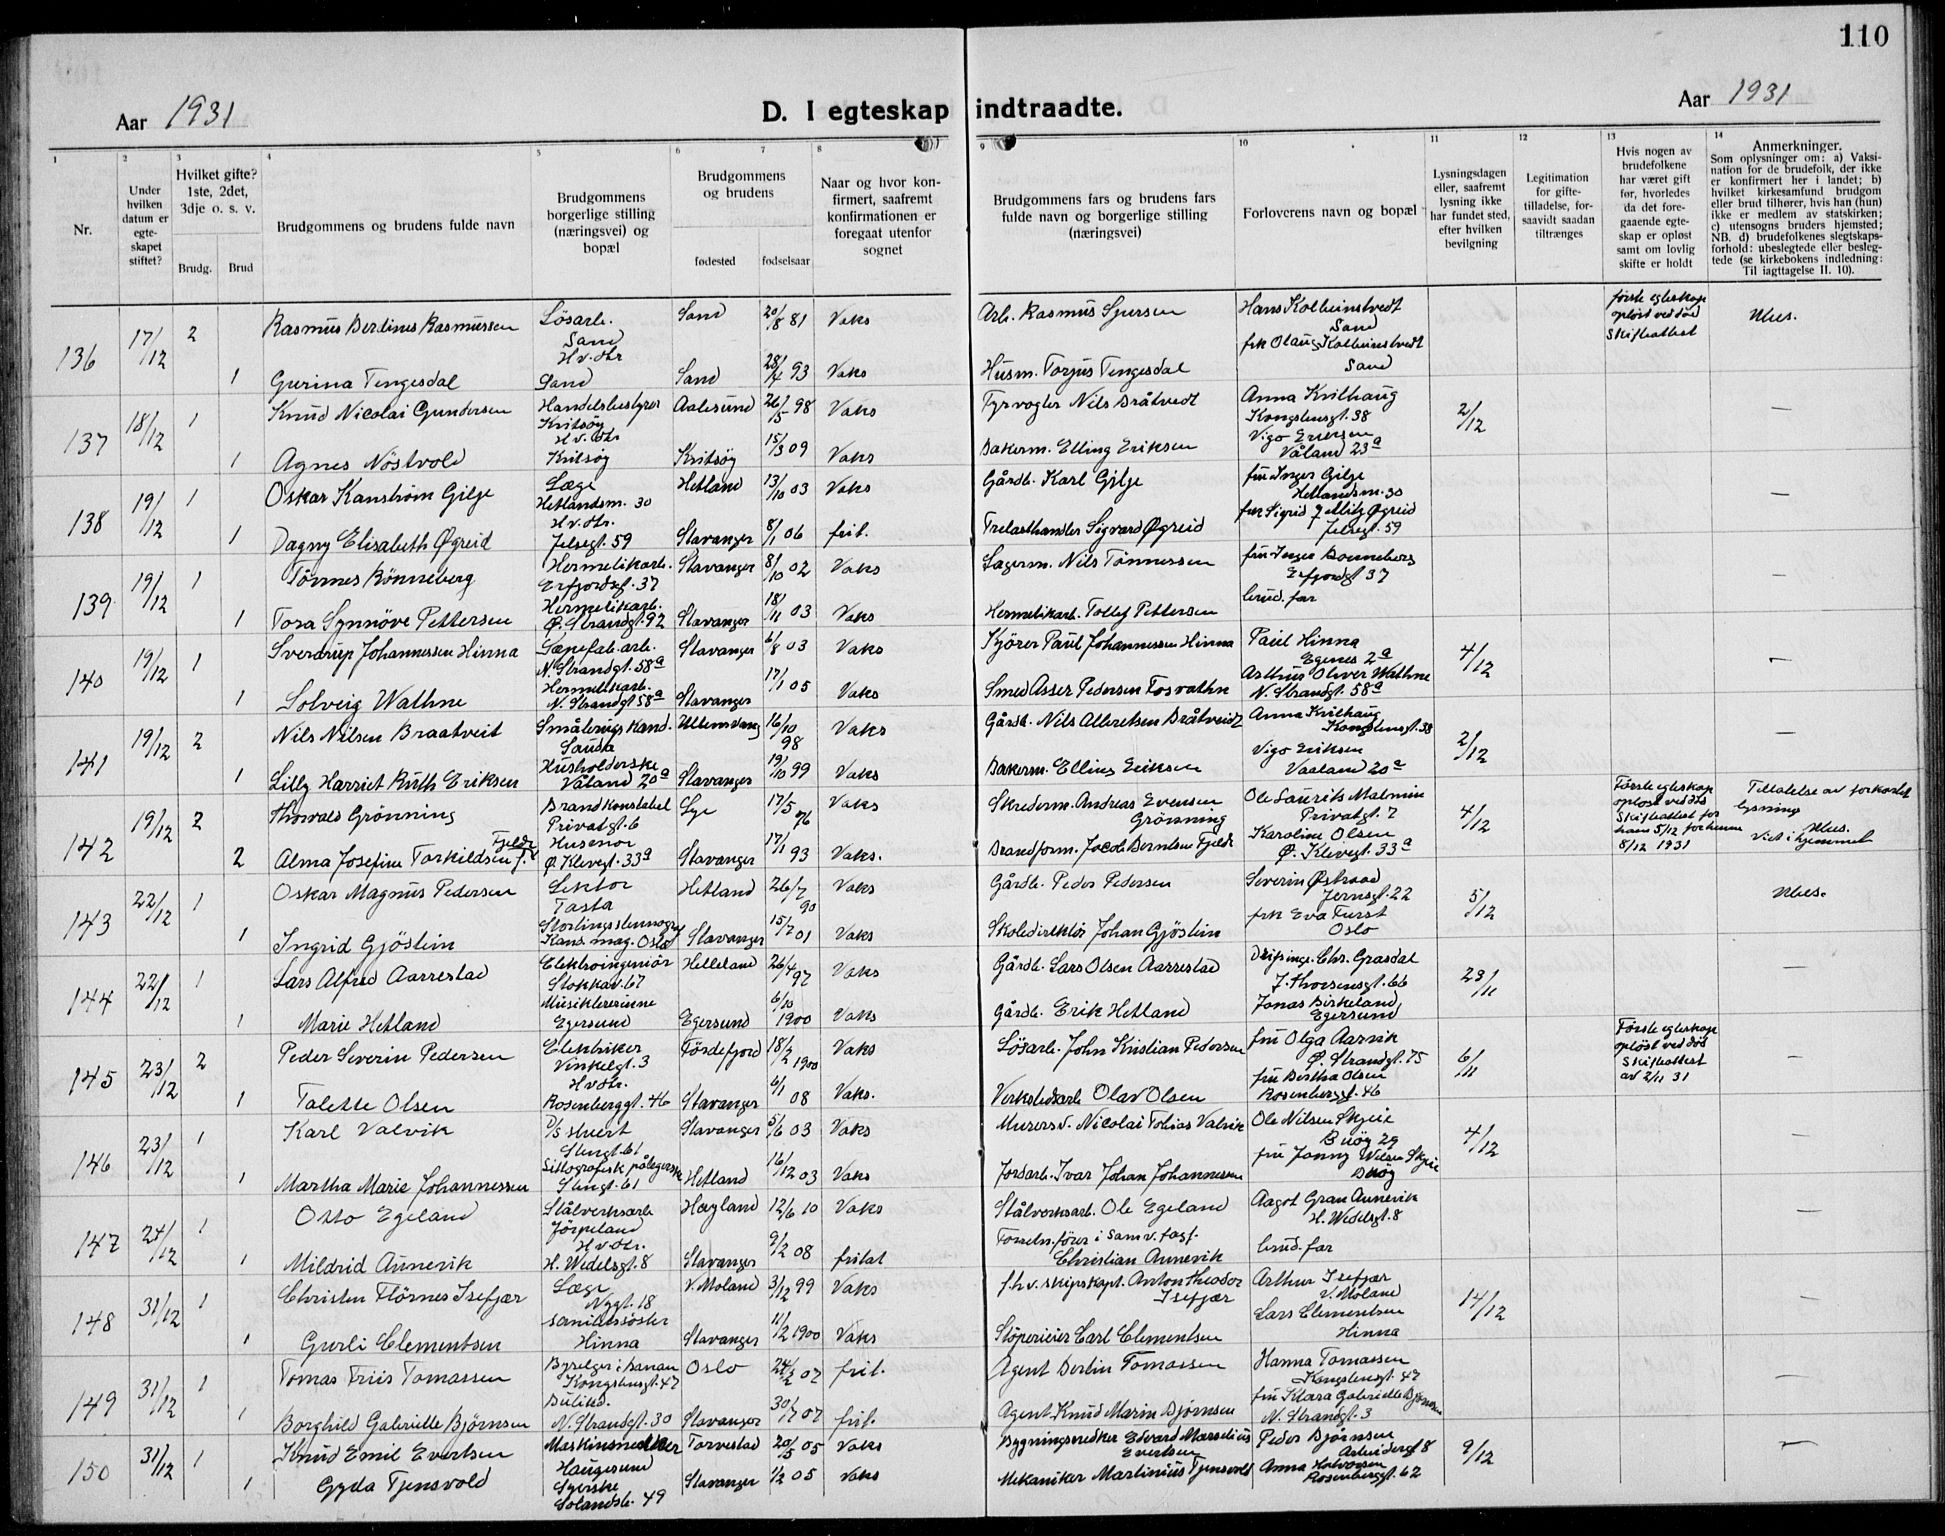 110
Aar 1931
D. I egteskap indtraadte.
Aar 1931
1
2
3
4
5
6
7
8
9
10
11
12
13
14
Nr.
Under hvilken datum er egte- skapet stiftet?
Hvilket gifte? 1ste, 2det, 3dje o. s. v.
Brudg.
Brud
Brudgommens og brudens fulde navn
Brudgommens borgerlige stilling (næringsvei) og bopæl
Brudgommens og brudens
fødested
fødselsaar
Naar og hvor kon- firmert, saafremt konfirmationen er foregaat utenfor sognet
Brudgommens fars og brudens fars fulde navn og borgerlige stilling (næringsvei)
Forloverens navn og bopæl
Lysningsdagen eller, saafremt lysning ikke har fundet sted, efter hvilken bevilgning
Legitimation for gifte- tilladelse, for- saavidt saadan tiltrænges
Hvis nogen av brudefolkene har været gift før, hvorledes da det fore- gaaende egte- skap er opløst samt om lovlig skifte er holdt
Anmerkninger.
Som oplysninger om: a) Vaksi- nation for de brudefolk, der ikke er konfirmert her i landet; b) hvilket kirkesamfund brudgom eller brud tilhører, hvis han (hun) ikke er medlem av statskirken; c) utensogns bruders hjemsted; NB. d) brudefolkenes slegtskaps- forhold: ubeslegtede eller besleg- tede (se kirkebokens indledning: Til iagttagelse II. 10).
136 17/12 2 Rasmus Berdines Rasmussen Lösarb. Sand H.v.otr Sand 20/8 81 Vaks Arb. Rasmus Sjursen Hans Kolbeinstvedt Sand første egteskap opløst ved død Skifteattest
1 Gurina Tengesdal Sand Sand 28/4 93 Vaks Husm. Torjus Tengesdal frk Olaug Kolbeinstvedt Sand
137 18/12 1 Knud Nicolai Gundersen Handelsbestyrer Kvitsøy H.v.otr Aalesund 26/5 98 Vaks Fyrvogter Nils Bråtvedt Anna Kvilhaug Kongshusgt. 38 2/12 —
1 Agnes Nöstvold Kvitsøy Kvitsøy 15/3 09 Vaks Bakerm. Elling Eriksen Vigo Eriksen Våland 23a
138 19/12 1 Oskar Kanstrøm Gilje Læge Hetlandsm. 30 H.v.otr. Hetland 13/10 03 Vaks Gårdb. Karl Gilje fru Inger Gilje Hetlandsm. 30 —
1 Dagny Elisabeth Øgreid Jelsegt. 59 Stavanger 8/1 06 frit. Trelasthandler Sigvard Øgreid frk Sigrid Øgreid Jelsegt. 59
139 19/12 1 Tönnes Rönneberg Hermetikarb. Erfjordgt. 37 Stavanger 8/10 02 Vaks Lagerm. Nils Tönnessen fru Inger Rönneberg Erfjordgt 37 —
1 Tora Synnöve Pettersen Hermetikarb. Ø. Strandgt. 92 Stavanger 18/11 03 Vaks Hermetikarb. Tollef Pettersen brud. far
140 19/12 1 Sverdrup Johannessen Hinna Sæpefab. arb. N. Strandgt. 58a Stavanger 6/8 03 Vaks Kjörer Paul Johannessen Hinna Paul Hinna Egenes 2a 4/12 —
1 Solveig Wathne Hermetikarb. N. Strandgt 58a Stavanger 17/1 05 Vaks Smed Asser Pedersen Fosvathn Arthur Oliver Wathne N. Strandgt. 58a
141 19/12 2 Nils Nilsen Braatveit Smålerugskand. Sauda Ullensvang 16/10 98 Vaks Gårdb. Nils Alleretsen Bråtveidt Anna Kvilhaug Kongshusgt. 38 2/12
1 Lilly Harriet Ruth Eriksen Husholderske Våland 20a Stavanger 19/10 99 Vaks Bakerm. Elling Eriksen Vigo Eriksen Vaaland 20a
142 19/12 2 Thorvald Grönning Brandkonstabel Privatgt. 6 Lye 17/5 76 Vaks Skrederm. Andreas Evensen Grönning Ole Laurits Malmin Privatgt. 7 4/12 Første egteskap opløst ved død Skifteattest for ham 5/12 for henne 8/12 1931 Tillatelse av forkortet lysning Ubes. Viet i hjemmet
2 Alma Josefine Torkildsen f. Fjelde Husmor Ø. Klevegt. 33a Stavanger 17/1 93 Vaks. Brandform. Jacob Berntsen Fjelde Karoline Olsen Ø. Klevegt. 33a
143 22/12 1 Oskar Magnus Pedersen Lektor Tasta Hetland 26/7 90 Vaks Gårdb. Peder Pedersen Severin Østraad Jernsgt. 22 5/12 Ubes.
1 Ingrid Gjöstein Stortingsstenograf Kans. mag. Oslo Stavanger 15/7 01 Vaks Skoledirektör Johan Gjöstein frk Eva Furst Oslo
144 22/12 1 Lars Alfred Aarrestad Elektroingeniör Stokkav. 67 Helleland 26/4 97 Vaks Gårdb. Lars Olsen Aarrestad Driftsinge. Chr. Grasdal J. Thorsensgt. 66 23/11 —
1 Marie Hetland Musiklererinne Egersund Egersund 6/10 1900 Vaks Gårdb. Erik Hetland Jonas Birkeland, Egersund
145 23/12 2 Peder Severin Pedersen Elektriker Vinkelgt. 3 H v otr. Fördefjord 18/2 1900 Vaks Lösarb. John Kristian Pedersen fru Olga Aarvik Ø. Strandgt. 75 6/11 Første egteskap opløst ved død Skifteattest av 2/11 31
1 Talette Olsen Rosenberggt. 46 Stavanger 6/1 08 Vaks. Verkstedsarb Olav Olsen fru Bertha Olsen Rosenberggt. 46
146 23/12 1 Karl Valvik D/S stuert Stengt. 61 Stavanger 5/6 03 Vaks Murersv. Nicolai Tobias Valvik Ole Nilsen Skjeie Buöy 29 4/12 —
1 Martha Marie Johannessen Litografisk pålegerske Stengt. 61 Hetland 16/12 03 Vaks Jordarb. Ivar Johan Johannessen fru Jonny Nilsen Skjeie Buöy
147 24/12 1 Otto Egeland Stålverksarb Jörpeland H v Otr. Høyland 12/6 10 Vaks Stålverksarb. Ole Egeland Aagot Gran Aunevik H. Wedelsgt. 8 —
1 Mildrid Aunevik H. Wedelsgt. 8 Stavanger 9/2 08 fritat Forretn. fører i Samv. fagf. Christian Aunevik brud. far
148 31/12 1 Christen Flörnes Isefjær Læge Nygt. 18 V. Moland 3/12 99 Vaks f.h.v. skipskapt. Anton Theodor Isefjær Arthur Isefjær V. Moland 14/12 —
1 Gurli Clementsen sanitetssöster Hinna Stavanger 11/2 1900 Vaks Stöperieier Carl Clementsen Lars Clementsen Hinna
149 31/12 1 Tomas Friis Tomassen Byselger i Banan Kongshusgt. 47 Oslo 24/2 07 frit. Agent Bertin Tomassen Hanna Tomassen Kongshusgt. 47 —
1 Borghild Gabrielle Bjørnsen Butikd. N. Strandgt. 30 Stavanger 30/7 07 frit. Agent Knud Marin Bjørnsen fru Klara Gabrielle Bjørnsen N. Strandgt. 3
150 31/12 1 Knud Emil Evertsen Maskinsnedker Haugesund Torvestad 20/5 05 Vaks Bygningssnedker Edvard Marselius Evertsen Peder Bjørnsen Arbeidergt 8 9/12 —
1 Gyda Tjensvold Syerske Solandsb. 49 Stavanger 1/2 05 Vaks Mekaniker Martinius Tjensvold Anna Halvorsen Rosenberggt. 62